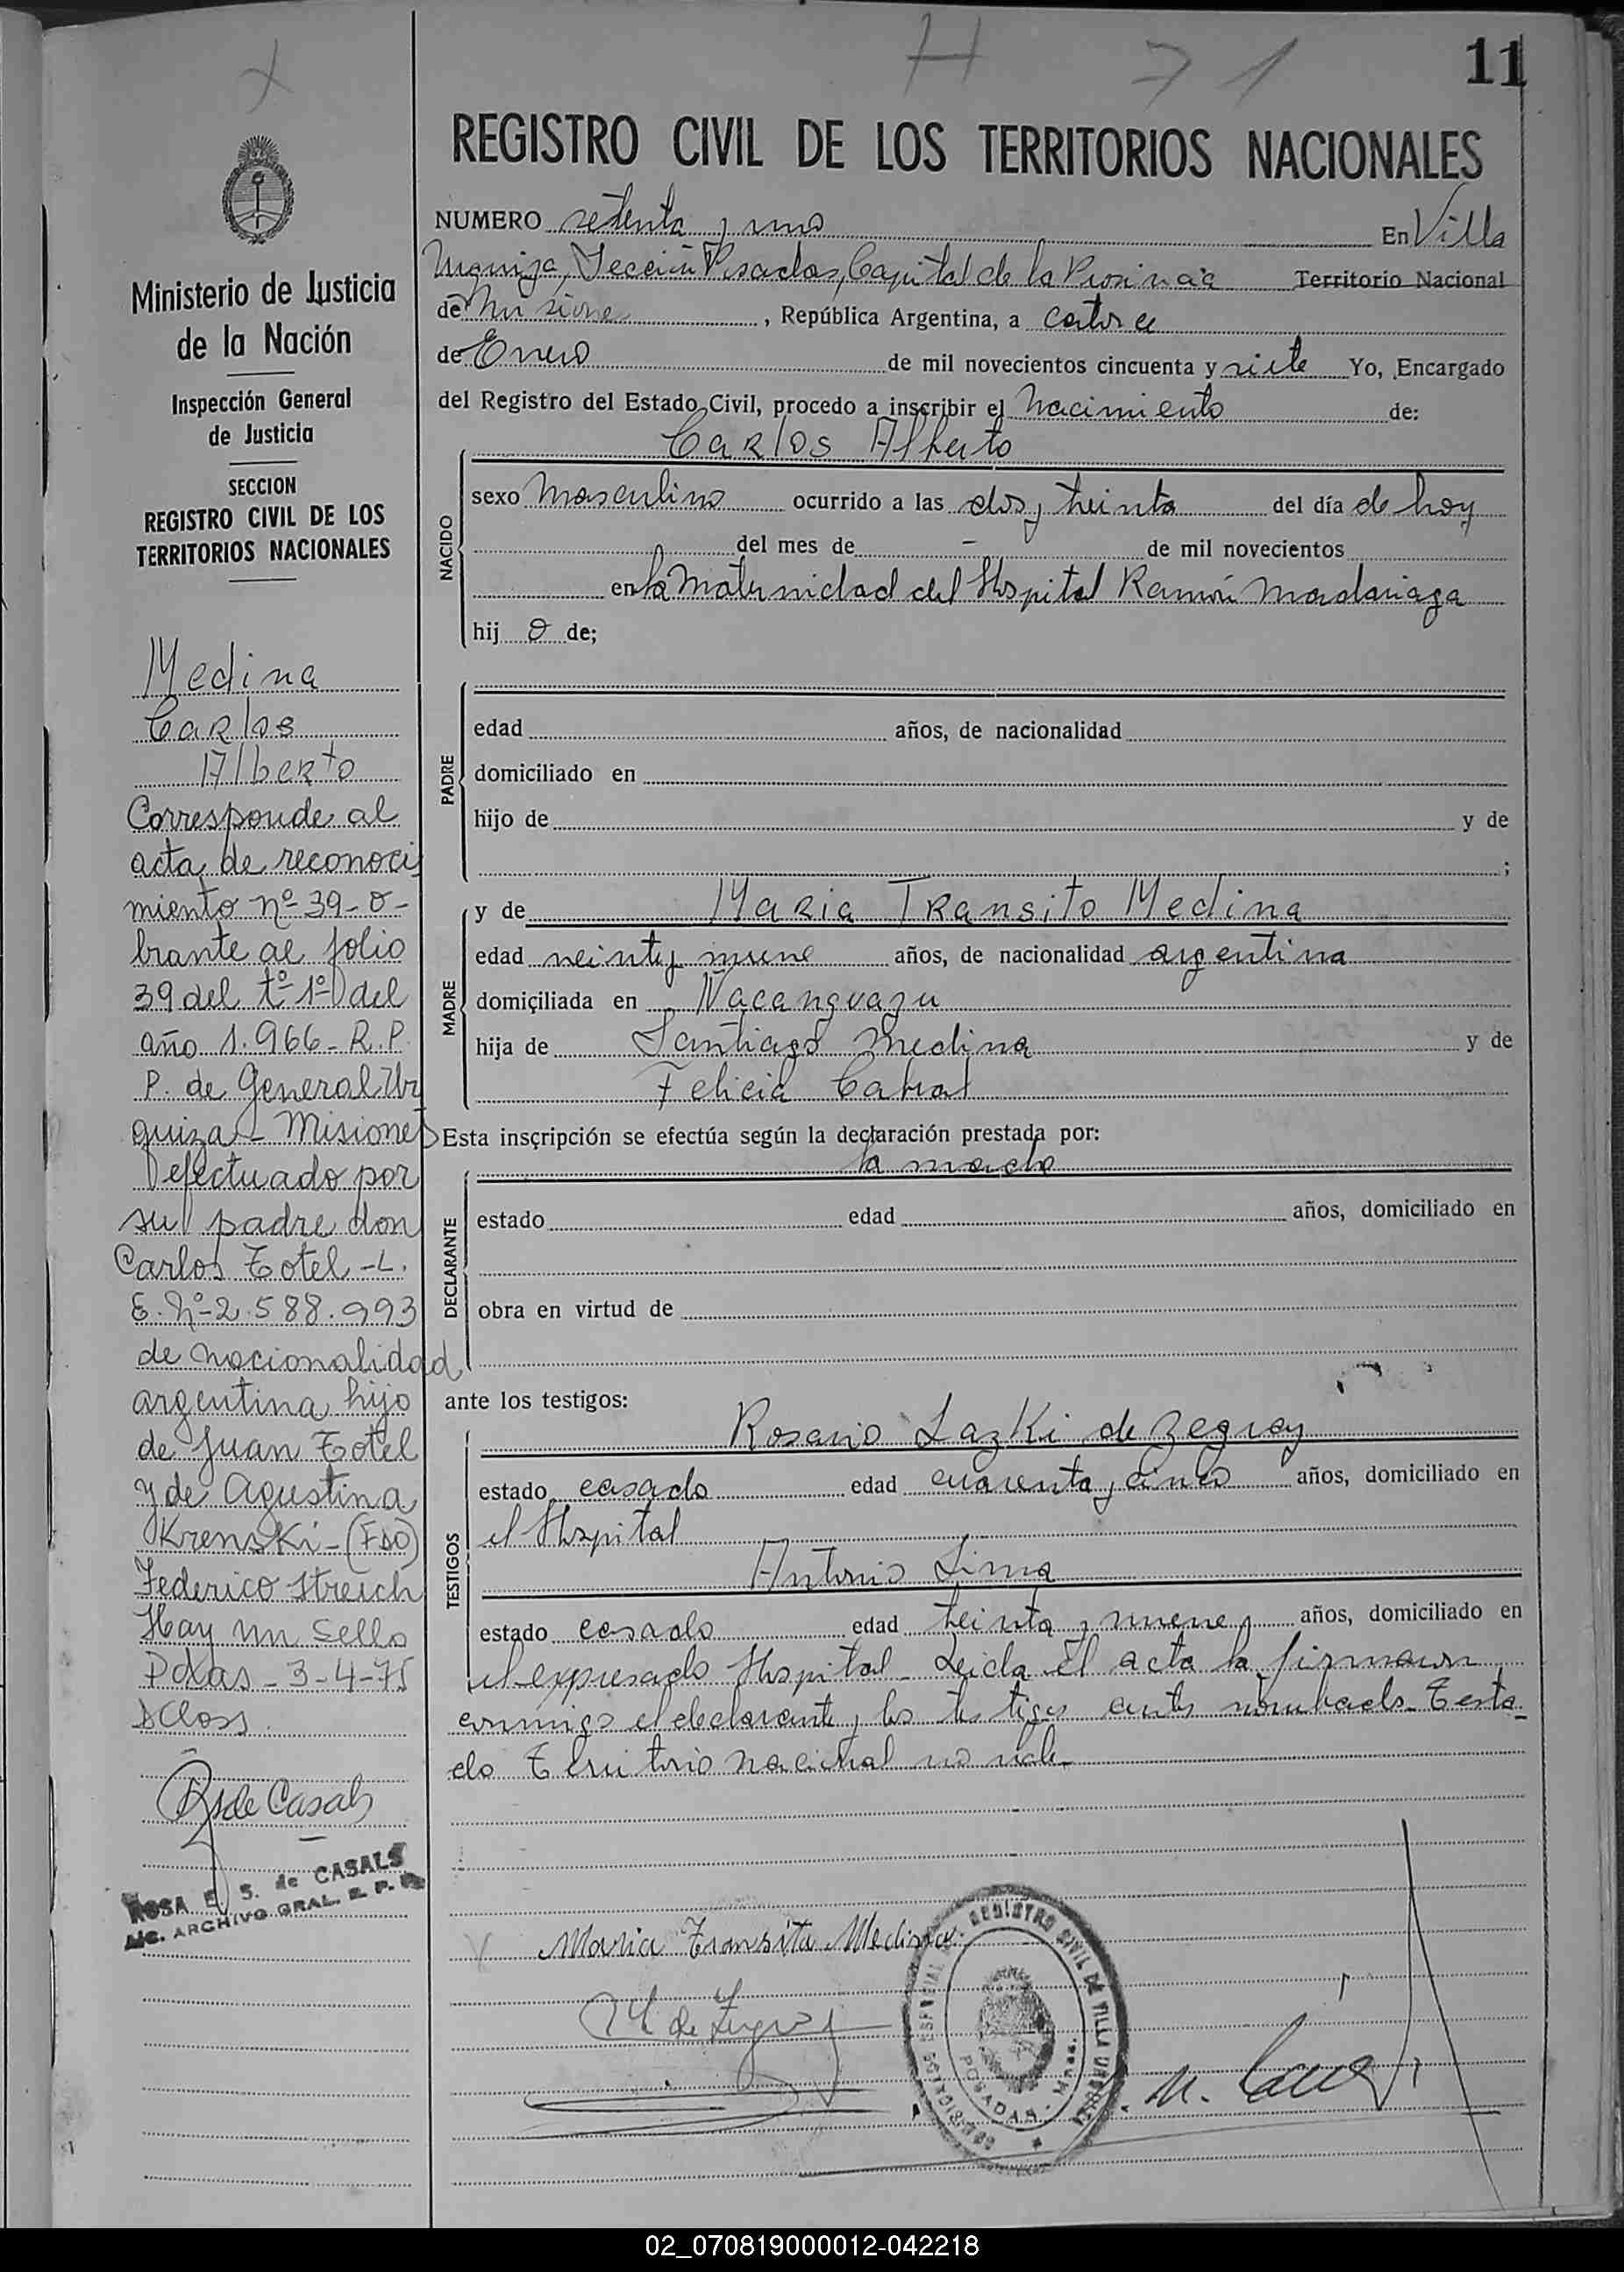 H 71
11
REGISTRO CIVIL DE LOS TERRITORIOS NACIONALES
NUMERO setenta y uno En Villa
Urquiza, Sección Posadas, Capital de la Provincia Territorio Nacional
de Misiones, República Argentina, a catorce
de Enero de mil novecientos cincuenta y siete Yo, Encargado
del Registro del Estado Civil, procedo a inscribir el Nacimiento de:
Carlos Alberto
NACIDO
sexo masculino ocurrido a las dos y treinta del día de hoy
del mes de - de mil novecientos
en la Maternidad del Hospital Ramón Madariaga
hij o de;
PADRE
edad años, de nacionalidad
domiciliado en
hijo de y de
;
MADRE
y de Maria Transito Medina
edad veinte y nueve años, de nacionalidad argentina
domiciliada en Ñacanguazu
hija de Santiago Medina y de
Felicia Cabral
Esta inscripción se efectúa según la declaración prestada por:
la madre
DECLARANTE
estado edad años, domiciliado en
obra en virtud de
ante los testigos:
TESTIGOS
Rosario Lazki de Zegray
estado casada edad cuarenta y cinco años, domiciliado en
el Hospital
Antonio Lima
estado casado edad treinta y nueve años, domiciliado en
el expresado Hospital_ Leida el acta la firmaron
conmigo el declarante y los testigos antes nombrads_ Testa_
do Territorio nacional no vale_
Maria Transita Medina
de Zegray
REGISTRO CIVIL DE VILLA URQUIZA
POSADAS - Mnes.
X
Ministerio de Justicia
de la Nación
Inspección General
de Justicia
SECCION
REGISTRO CIVIL DE LOS
TERRITORIOS NACIONALES
Medina
Carlos
Alberto
Corresponde al
acta de reconoci
miento nº 39-o-
brante al folio
39 del tº 1º del
año 1.966_ R.P.
P. de General Ur
quiza - Misiones
efectuado por
su padre don
Carlos Totel -L.
E. Nº-2.588.993
de nacionalidad
argentina hijo
de Juan Totel
y de Agustina
Krenski-(FDO)
Federico Streich
Hay un Sello
Pdas_3-4-75
DCloss
R s de Casals
ROSA E. S. de CASALS
ARCHIVO GRAL. R. P. P.
02_070819000012-042218